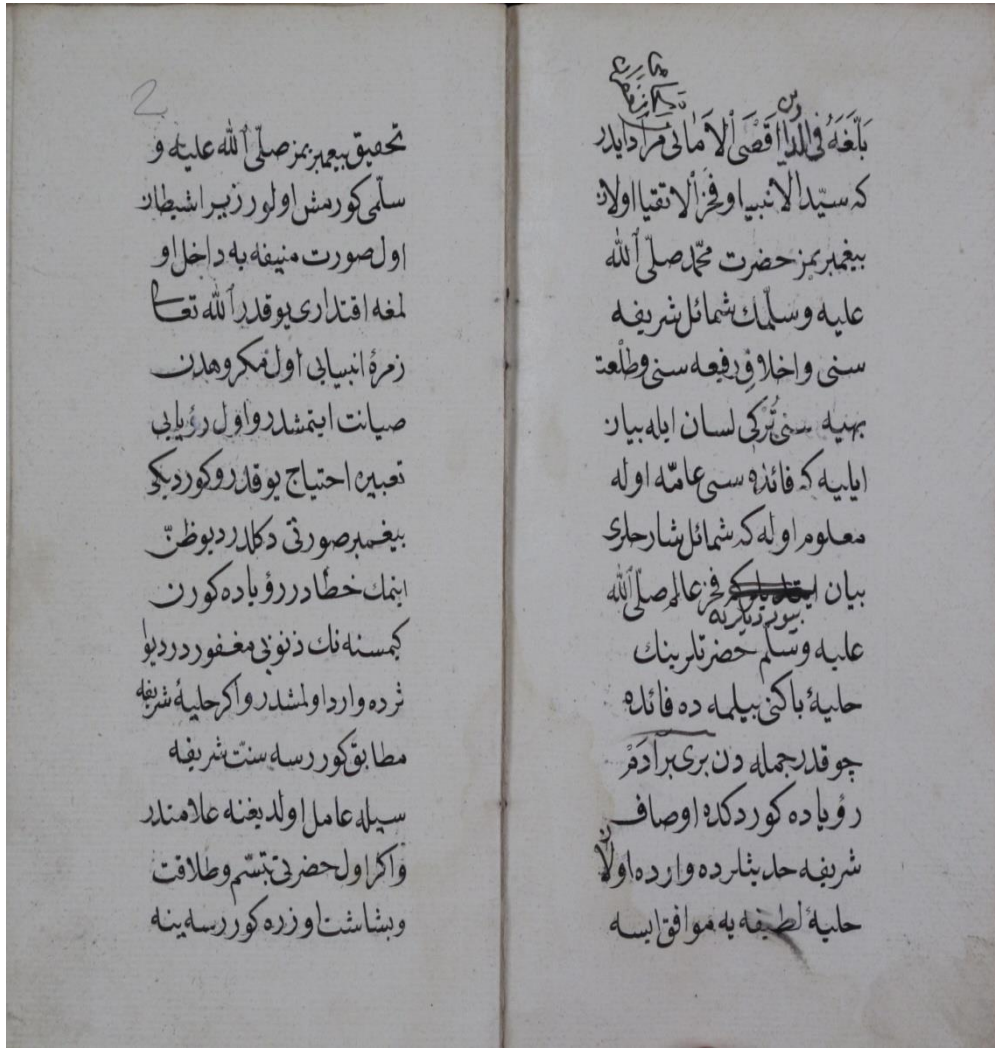 بَلَّغَهُ فی الدارین اقصَی اْلاَمَانی مراد ایدر
که سیّد الانبیا و فخر الاتقیا اولان
پیغمبریمز حضرت محمّد صلّی الله
علیه وسلّمك شمائل شریفه
سنی واخلاق رفیعه سنی وطلعت
بهیه سنی تُرکی لسان ایله بیان
ایلیه که فائده سی عامّه اوله
معلوم اوله که شمائل شارحلری
بیان فخر عالم صلّی الله
بیورد یلرکه
علیه وسلّم حضرتلرینك
حلیۀ پاکنی بیلمه ده فائده
چوقدر جمله دن بری بر آدم
رؤیاده کوردکده اوصاف
شریفه حدیثلرده وارده اولان
حلیۀ لطیفه یه موافق ایسه
2
تحقیق پیغمبریمز صلّی الله علیه و
سلّمی کورمش اولور زیرا شیطان
اول صورت منیفه یه داخل او
لمغه اقتداری یوقدر الله تعا
زمرۀ انبیایی اول مکروهدن
صیانت ایتمشدر و اول رؤیایی
تعبیره احتیاج یوقدر و کوردیکی
پیغمبر صورتی دکلدر دیو ظنّ
ایتمك خطادر رؤیاده کورن
کیمسنه نك ذنوبی مغفوردر دیو ا
ثرده وارد اولمشدر و اکر حلیۀ شریفه
مطابق کوررسه سنت شریفه
سیله عامل اولدیغنه علامتدر
واکر اول حضرتی تبسّم وطلاقت
وبشاشت اوزره کوررسه ینه